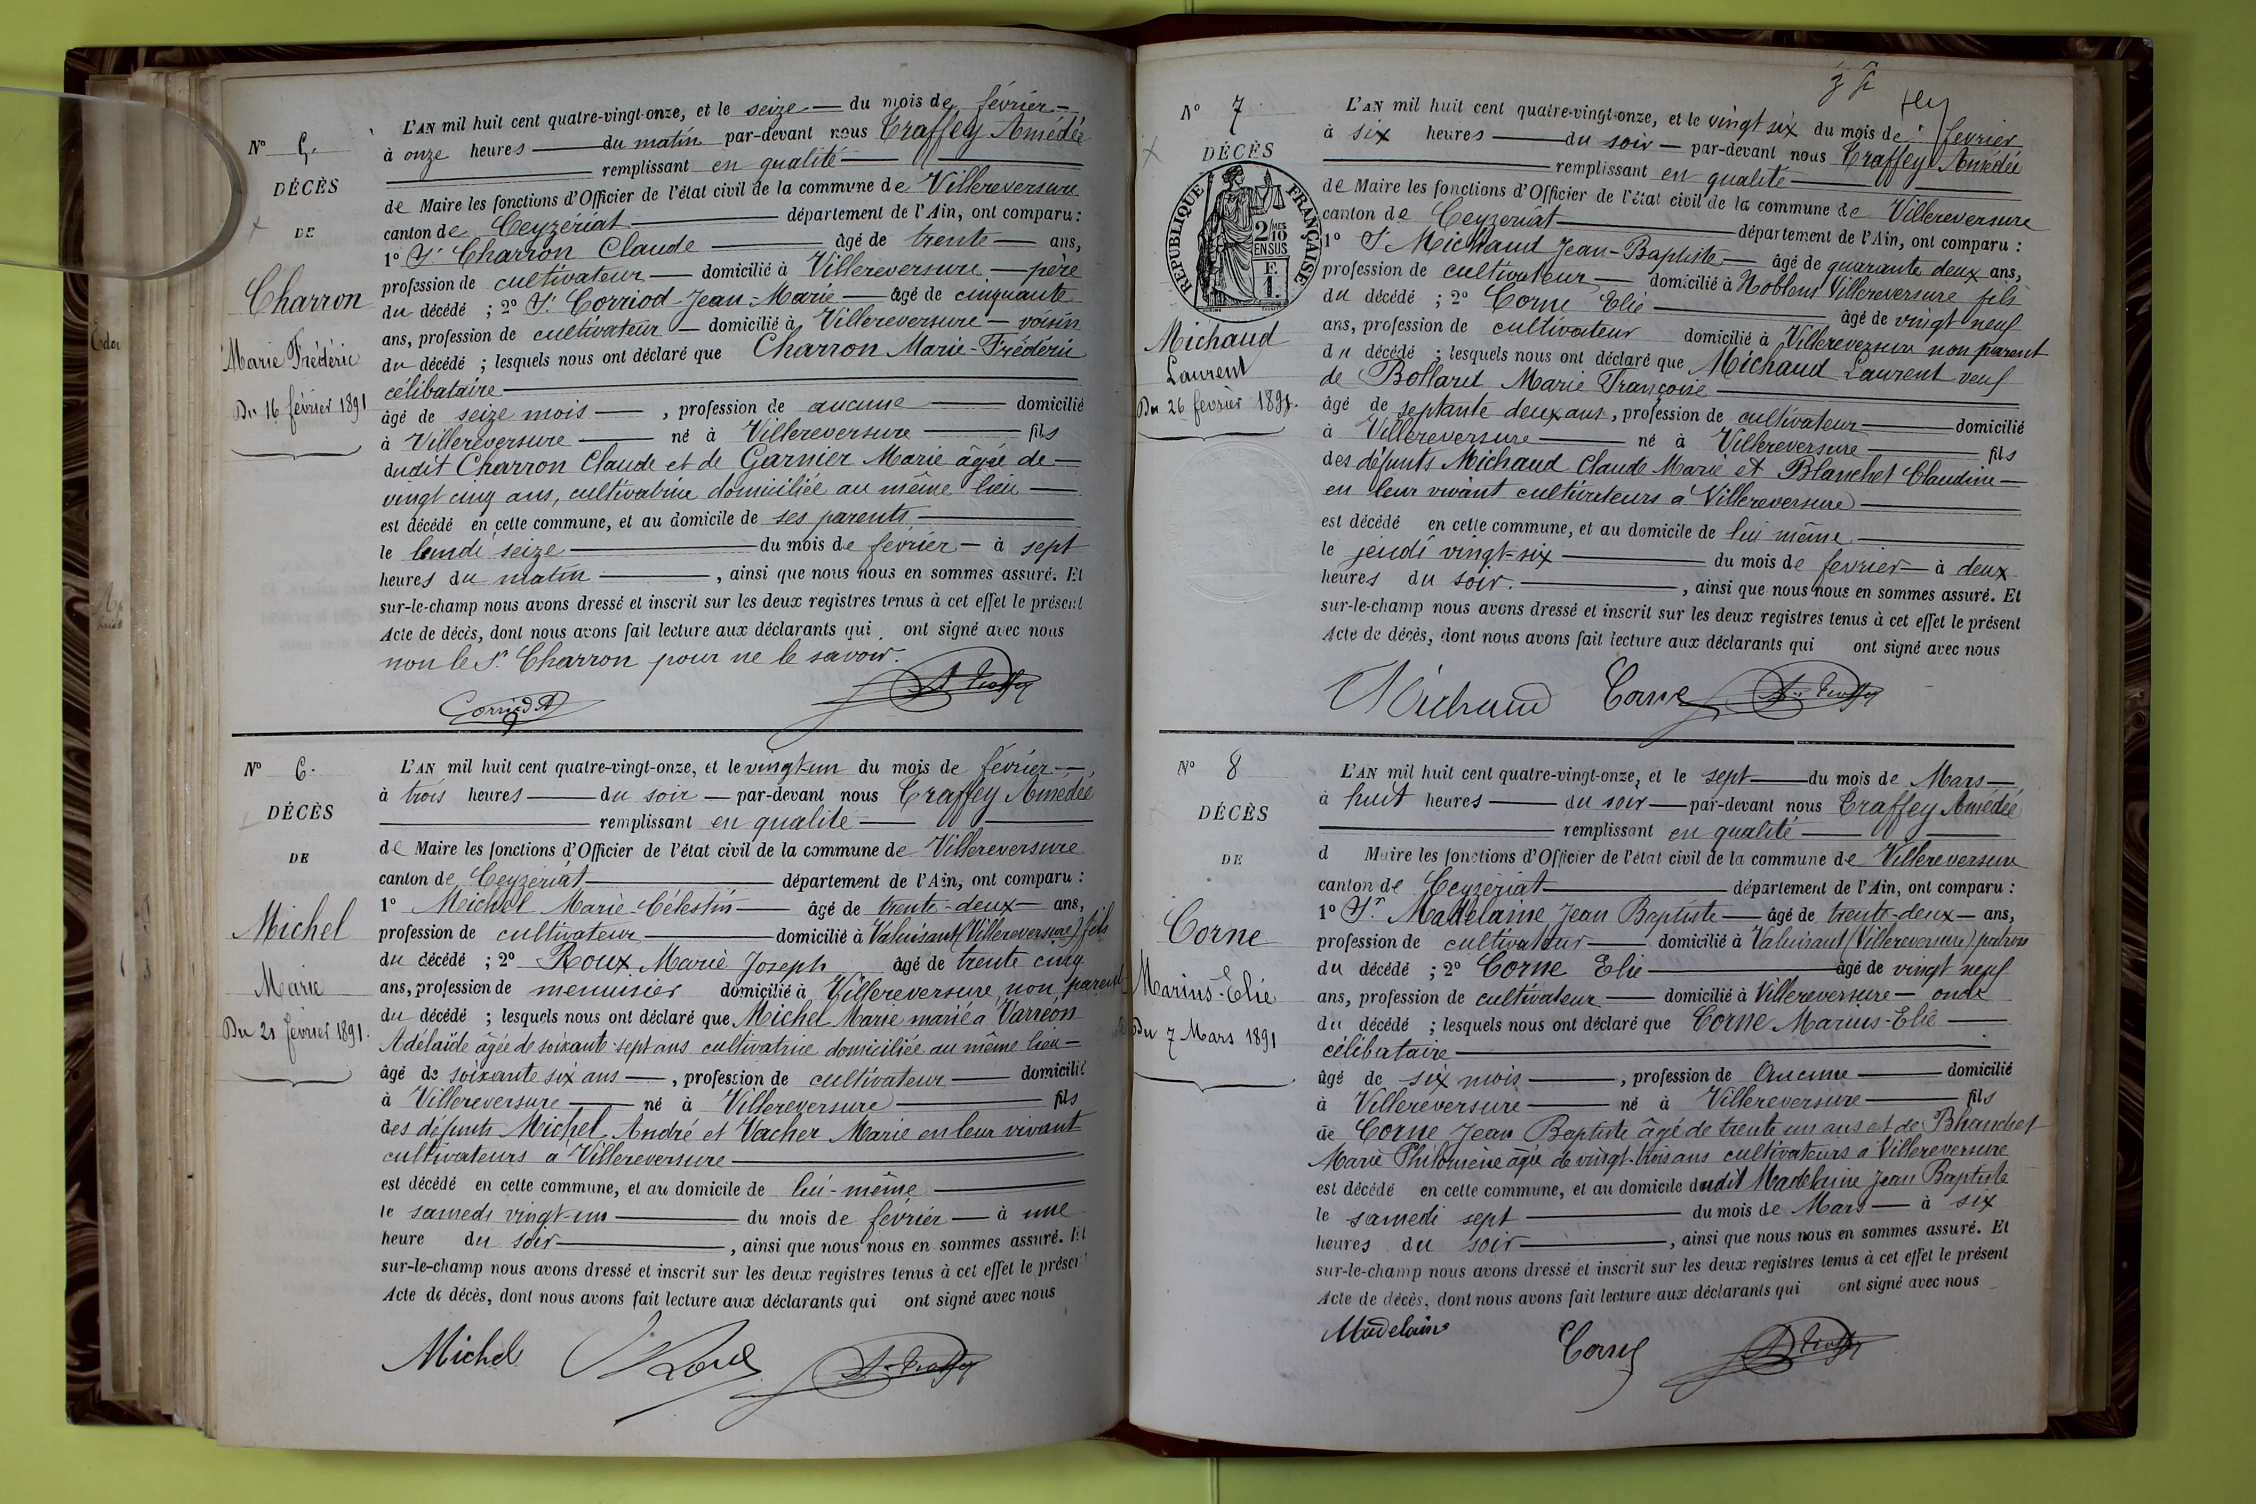 N° 5.
DÉCÈS
DE
Charron
Marie Frédéric
Du 16 février 1891
L'AN mil huit cent quatre-vingt-onze, et le seize du mois de février
à onze heures du matin par-devant nous Traffey Amédée
remplissant en qualité
de Maire les fonctions d'Officier de l'état civil de la commune de Villereversure
canton de Ceyzériat département de l'Ain, ont comparu :
1° Sr Charron Claude âgé de trente ans,
profession de cultivateur domicilié à Villereversure père
du décédé ; 2° Sr Corriod Jean-Marie âgé de cinquante
ans, profession de cultivateur domicilié à Villereversure voisin
du décédé ; lesquels nous ont déclaré que Charron Marie-Frédéric
célibataire
âgé de seize mois, profession de aucune domicilié
à Villereversure né à Villereversure fils
dudit Charron Claude et de Garnier Marie âgée de
vingt cinq ans, cultivatrice domiciliée au même lieu
est décédé en cette commune, et au domicile de ses parents
le lundi seize du mois de février à sept
heures du matin, ainsi que nous nous en sommes assuré. Et
sur-le-champ nous avons dressé et inscrit sur les deux registres tenus à cet effet le présent
Acte de décès, dont nous avons fait lecture aux déclarants qui ont signé avec nous
non le Sr Charron pour ne le savoir.
N° 6.
DÉCÈS
DE
Michel
Marie
Du 21 février 1891.
L'AN mil huit cent quatre-vingt-onze, et le vingt-un du mois de février
à trois heures du soir par-devant nous Traffey Amédée
remplissant en qualité
de Maire les fonctions d'Officier de l'état civil de la commune de Villereversure
canton de Ceyzériat département de l'Ain, ont comparu :
1° Michel Marie-Célestin âgé de trente-deux ans,
profession de cultivateur domicilié à Valuisant (Villereversure) fils
du décédé ; 2° Roux Marie Joseph âgé de trente cinq
ans, profession de menuisier domicilié à Villereversure non parent
du décédé ; lesquels nous ont déclaré que Michel Marie marié à Varréon
Adélaïde âgée de soixante-sept ans cultivatrice domiciliée au même lieu
âgé de soixante six ans, profession de cultivateur domicilié
à Villereversure né à Villereversure fils
des défunts Michel André et Vacher Marie en leur vivant
cultivateurs à Villereversure
est décédé en cette commune, et au domicile de lui-même
le samedi vingt-un du mois de février à une
heure du soir, ainsi que nous nous en sommes assuré. Et
sur-le-champ nous avons dressé et inscrit sur les deux registres tenus à cet effet le présent
Acte de décès, dont nous avons fait lecture aux déclarants qui ont signé avec nous
Michel Roux
N° 7
DÉCÈS
RÉPUBLIQUE FRANÇAISE
2 MES
10
EN SUS
F.
1.
Michaud
Laurent
Du 26 février 1891.
L'AN mil huit cent quatre-vingt-onze, et le vingt six du mois de février
à six heures du soir par-devant nous Traffey Amédée
remplissant en qualité
de Maire les fonctions d'Officier de l'état civil de la commune de Villereversure
canton de Ceyzeriat département de l'Ain, ont comparu :
1° Sr Michaud Jean-Baptiste âgé de quarante deux ans,
profession de cultivateur domicilié à Noblens Villereversure fils
du décédé ; 2° Corne Elie âgé de vingt neuf
ans, profession de cultivateur domicilié à Villereversure non parent
du décédé ; lesquels nous ont déclaré que Michaud Laurent veuf
de Bollard Marie Françoise
âgé de septante deux ans, profession de cultivateur domicilié
à Villereversure né à Villereversure fils
des défunts Michaud Claude Marie et Blanchet Claudine
en leur vivant cultivateurs à Villereversure
est décédé en cette commune, et au domicile de lui même
le jeudi vingt-six du mois de fevrier à deux
heures du soir., ainsi que nous nous en sommes assuré. Et
sur-le-champ nous avons dressé et inscrit sur les deux registres tenus à cet effet le présent
Acte de décès, dont nous avons fait lecture aux déclarants qui ont signé avec nous
Michaud Corne
N° 8
DÉCÈS
DE
Corne
Marius-Elie
Du 7 Mars 1891
L'AN mil huit cent quatre-vingt-onze, et le sept du mois de Mars
à huit heures du soir par-devant nous Traffey Amédée
remplissant en qualité
d Maire les fonctions d'Officier de l'état civil de la commune de Villereversure
canton de Ceyzériat département de l'Ain, ont comparu :
1° Sr Madelaine Jean Baptiste âgé de trente-deux ans,
profession de cultivateur domicilié à Valuisant (Villereversure) patron
du décédé ; 2° Corne Elie âgé de vingt neuf
ans, profession de cultivateur domicilié à Villereversure oncle
du décédé ; lesquels nous ont déclaré que Corne Marius-Elie
célibataire
âgé de six mois, profession de Aucune domicilié
à Villereversure né à Villereversure fils
de Corne Jean Baptiste âgé de trente un ans et de Blanchet
Marie Philomène âgée de vingt-trois ans cultivateurs à Villereversure
est décédé en cette commune, et au domicile dudit Madelaine Jean Baptiste
le samedi sept du mois de Mars à six
heures du soir, ainsi que nous nous en sommes assuré. Et
sur-le-champ nous avons dressé et inscrit sur les deux registres tenus à cet effet le présent
Acte de décès, dont nous avons fait lecture aux déclarants qui ont signé avec nous
Madelaine Corne